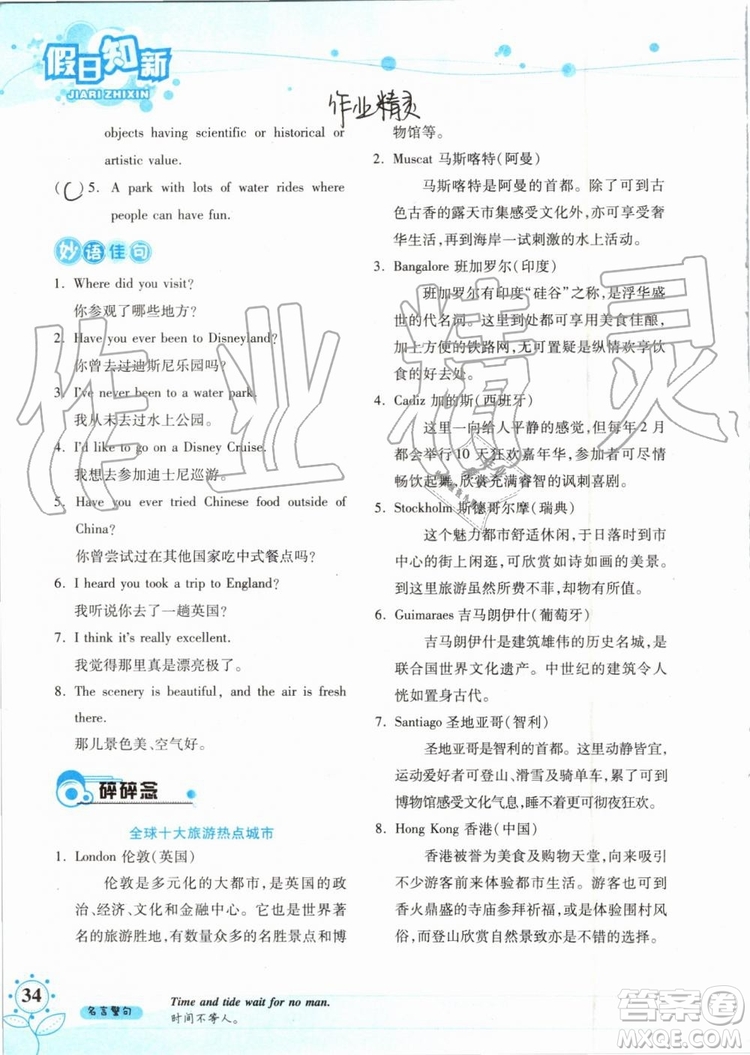 假日知新
JIARI ZHIXIN
作业精灵
objects having scientific or historical or
artistic value.
( C ) 5. A park with lots of water rides where
people can have fun.
妙语佳句
1. Where did you visit?
你参观了哪些地方?
2. Have you ever been to Disneyland?
你曾去过迪斯尼乐园吗?
3. I've never been to a water park.
我从未去过水上公园。
4. I'd like to go on a Disney Cruise.
我想去参加迪士尼巡游。
5. Have you ever tried Chinese food outside of
China?
你曾尝试过在其他国家吃中式餐点吗?
6. I heard you took a trip to England?
我听说你去了一趟英国?
7. I think it's really excellent.
我觉得那里真是漂亮极了。
8. The scenery is beautiful, and the air is fresh
there.
那儿景色美、空气好。
碎碎念
全球十大旅游热点城市
1. London 伦敦(英国)
伦敦是多元化的大都市,是英国的政
治、经济、文化和金融中心。它也是世界著
名的旅游胜地,有数量众多的名胜景点和博
物馆等。
2. Muscat 马斯喀特(阿曼)
马斯喀特是阿曼的首都。除了可到古
色古香的露天市集感受文化外,亦可享受奢
华生活,再到海岸一试刺激的水上活动。
3. Bangalore 班加罗尔(印度)
班加罗尔有印度“硅谷”之称,是浮华盛
世的代名词。到该处都可享用美食佳酿,
加上方便的铁路网,无可置疑是纵情欢享饮
食的好去处。
4. Cadiz 加的斯(西班牙)
这里一向给人平静的感觉,但每年 2 月
都会举行 10 天狂欢嘉年华,大家可尽情
畅饮起舞、欣赏充满睿智的讽刺喜剧。
5. Stockholm 斯德哥尔摩(瑞典)
这个魅力都市舒适休闲,于日落时到市
中心的街上闲逛,可欣赏如诗如画的美景。
到这里旅游虽然所费不菲,却物有所值。
6. Guimaraes 吉马朗伊什(葡萄牙)
吉马朗伊什是建筑雄伟的历史名城,是
联合国世界文化遗产。中世纪的建筑令人
恍如踏进古代。
7. Santiago 圣地亚哥(智利)
圣地亚哥是智利的首都。这里动静皆宜,
运动爱好者可登山、滑雪及骑单车,可以到
博物馆感受文化气息,晚上更可以狂欢。
8. Hong Kong 香港(中国)
香港被誉为美食及购物天堂,向来吸引
各地游客来体验都市生活。游客也可到
香火鼎盛的寺庙参拜祈福,或体验围村风
俗,而登山欣赏自然景致亦是不错的选择。
34
名言警句
Time and tide wait for no man.
时间不等人。
作业精灵
答案圈
MXQE.COM